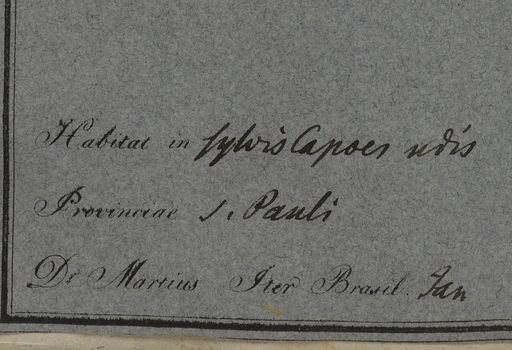 Habitat in sylvis Capoes udis
Provinciae S. Pauli
Dr. Martius Iter Brasil. Jan